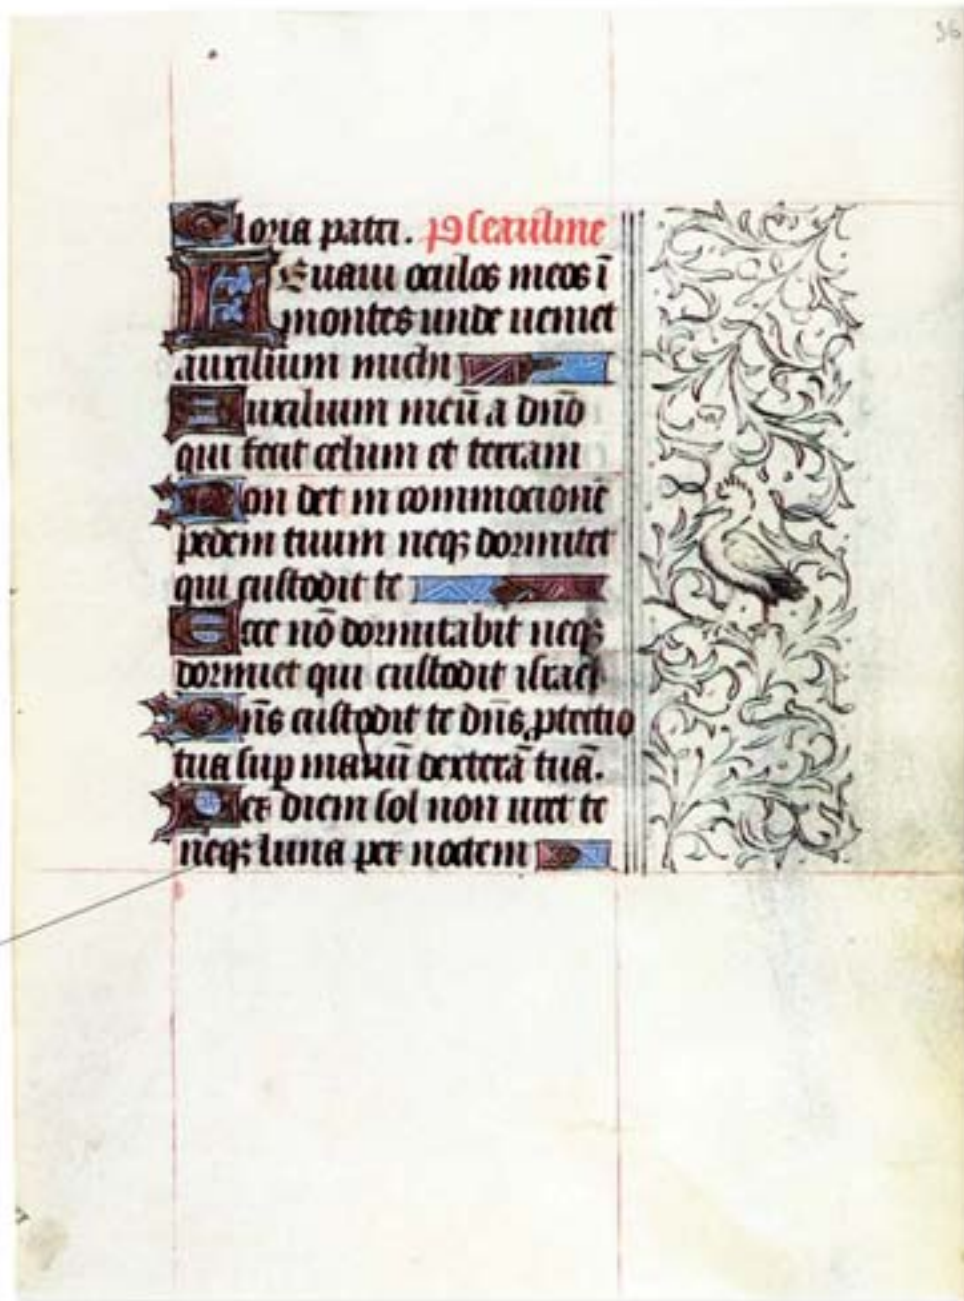 36
Gloria patri. Pseaulme
Leuaui oculos meos ī
montes unde ueniet
auxilium michi
Auxilium meū a dnō
qui fecit celum et terram
Non det in commocionē
pedem tuum neqꝫ dormitet
qui custodit te
Ecce nō dormitabit neqꝫ
dormiet qui custodit israel
Dn̄s custodit te dn̄s ꝓtectio
tua sup manū dexterā tuā.
Per diem sol non uret te
neqꝫ luna per noctem